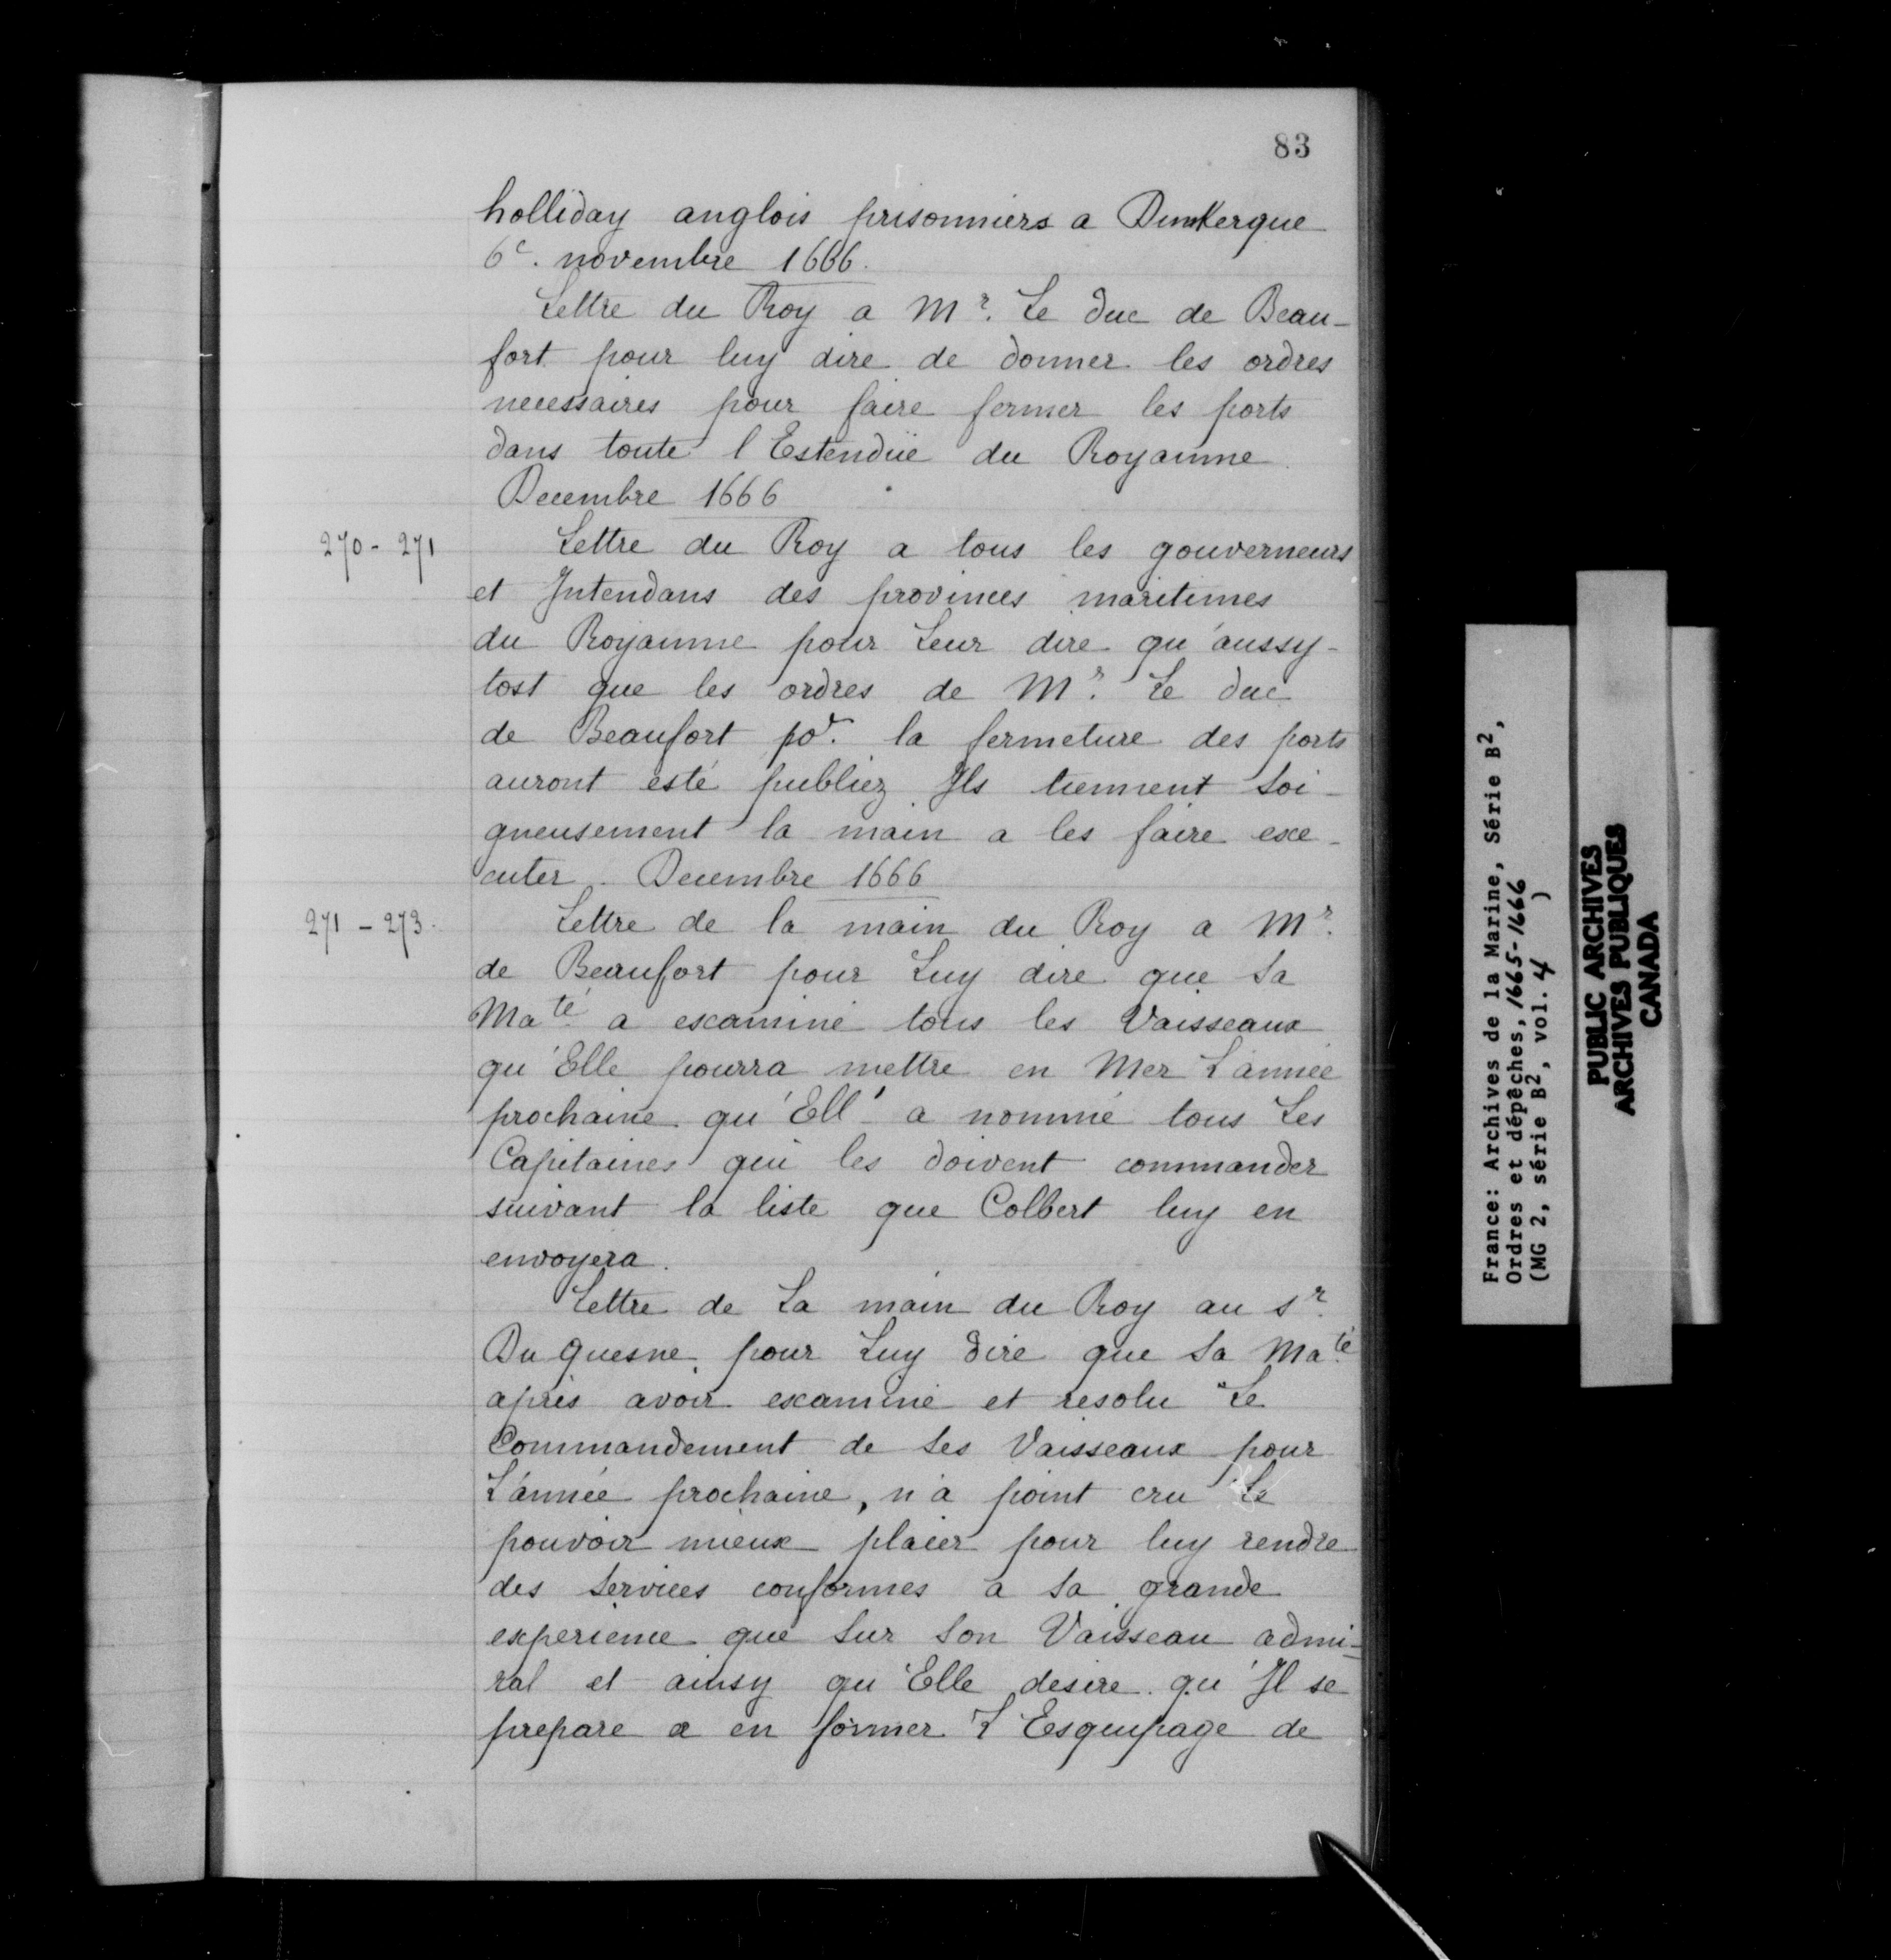 83
holliday anglois prisonniers a Dunkerque
6e. novembre 1666.
Lettre du Roy a Mr. Le duc de Beau-
fort pour luy dire de donner les ordres
necessaires pour faire fermer les ports
dans toute l'Estendüe du Royaume
Decembre 1666
270-271
Lettre du Roy a tous les gouverneurs
et Intendans des provinces maritimes
du Royaume pour Leur dire qu'aussy-
tost que les ordres de Mr. Le duc
de Beaufort por. la fermeture des ports
auront esté publiez Ils tiennent soi-
gneusement la main a les faire exe-
cuter. Decembre 1666
271-273.
Lettre de la main du Roy a Mr.
de Beaufort pour Luy dire que sa
Maté a examiné tous les Vaisseaux
qu'Elle pourra mettre en Mer L'année
prochaine qu'Ell' a nommé tous Les
Capitaines qui les doivent commander
suivant la liste que Colbert luy en
envoyera.
Lettre de La main du Roy au sr.
Du Quesne, pour Luy dire que sa Maté
après avoir examiné et resolu Le
Commandement de ses Vaisseaux pour
L'année prochaine, n'a point cru Le
pouvoir mieux placer pour luy rendre
des services conformes a sa grande
experience que sur son Vaisseau admi-
ral et ainsy qu'Elle desire qu'Il se
prepare a en former L'Esquipage de
France: Archives de la Marine, Série B2,
Ordres et dépêches, 1665-1666
(MG 2, série B2, vol. 4 )
PUBLIC ARCHIVES
ARCHIVES PUBLIQUES
CANADA